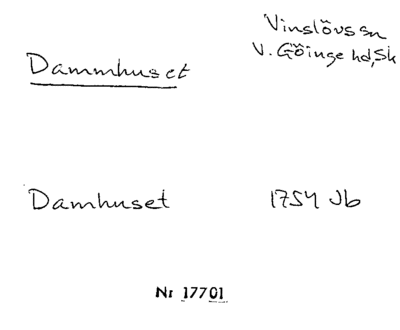 Vinslövs sn
V. Göinge hd, Sk
Dammhuset
Damhuset 1754 Jb
Nr 17701